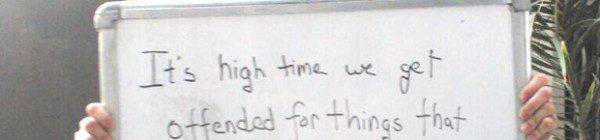 It's high time we get
offended for things that